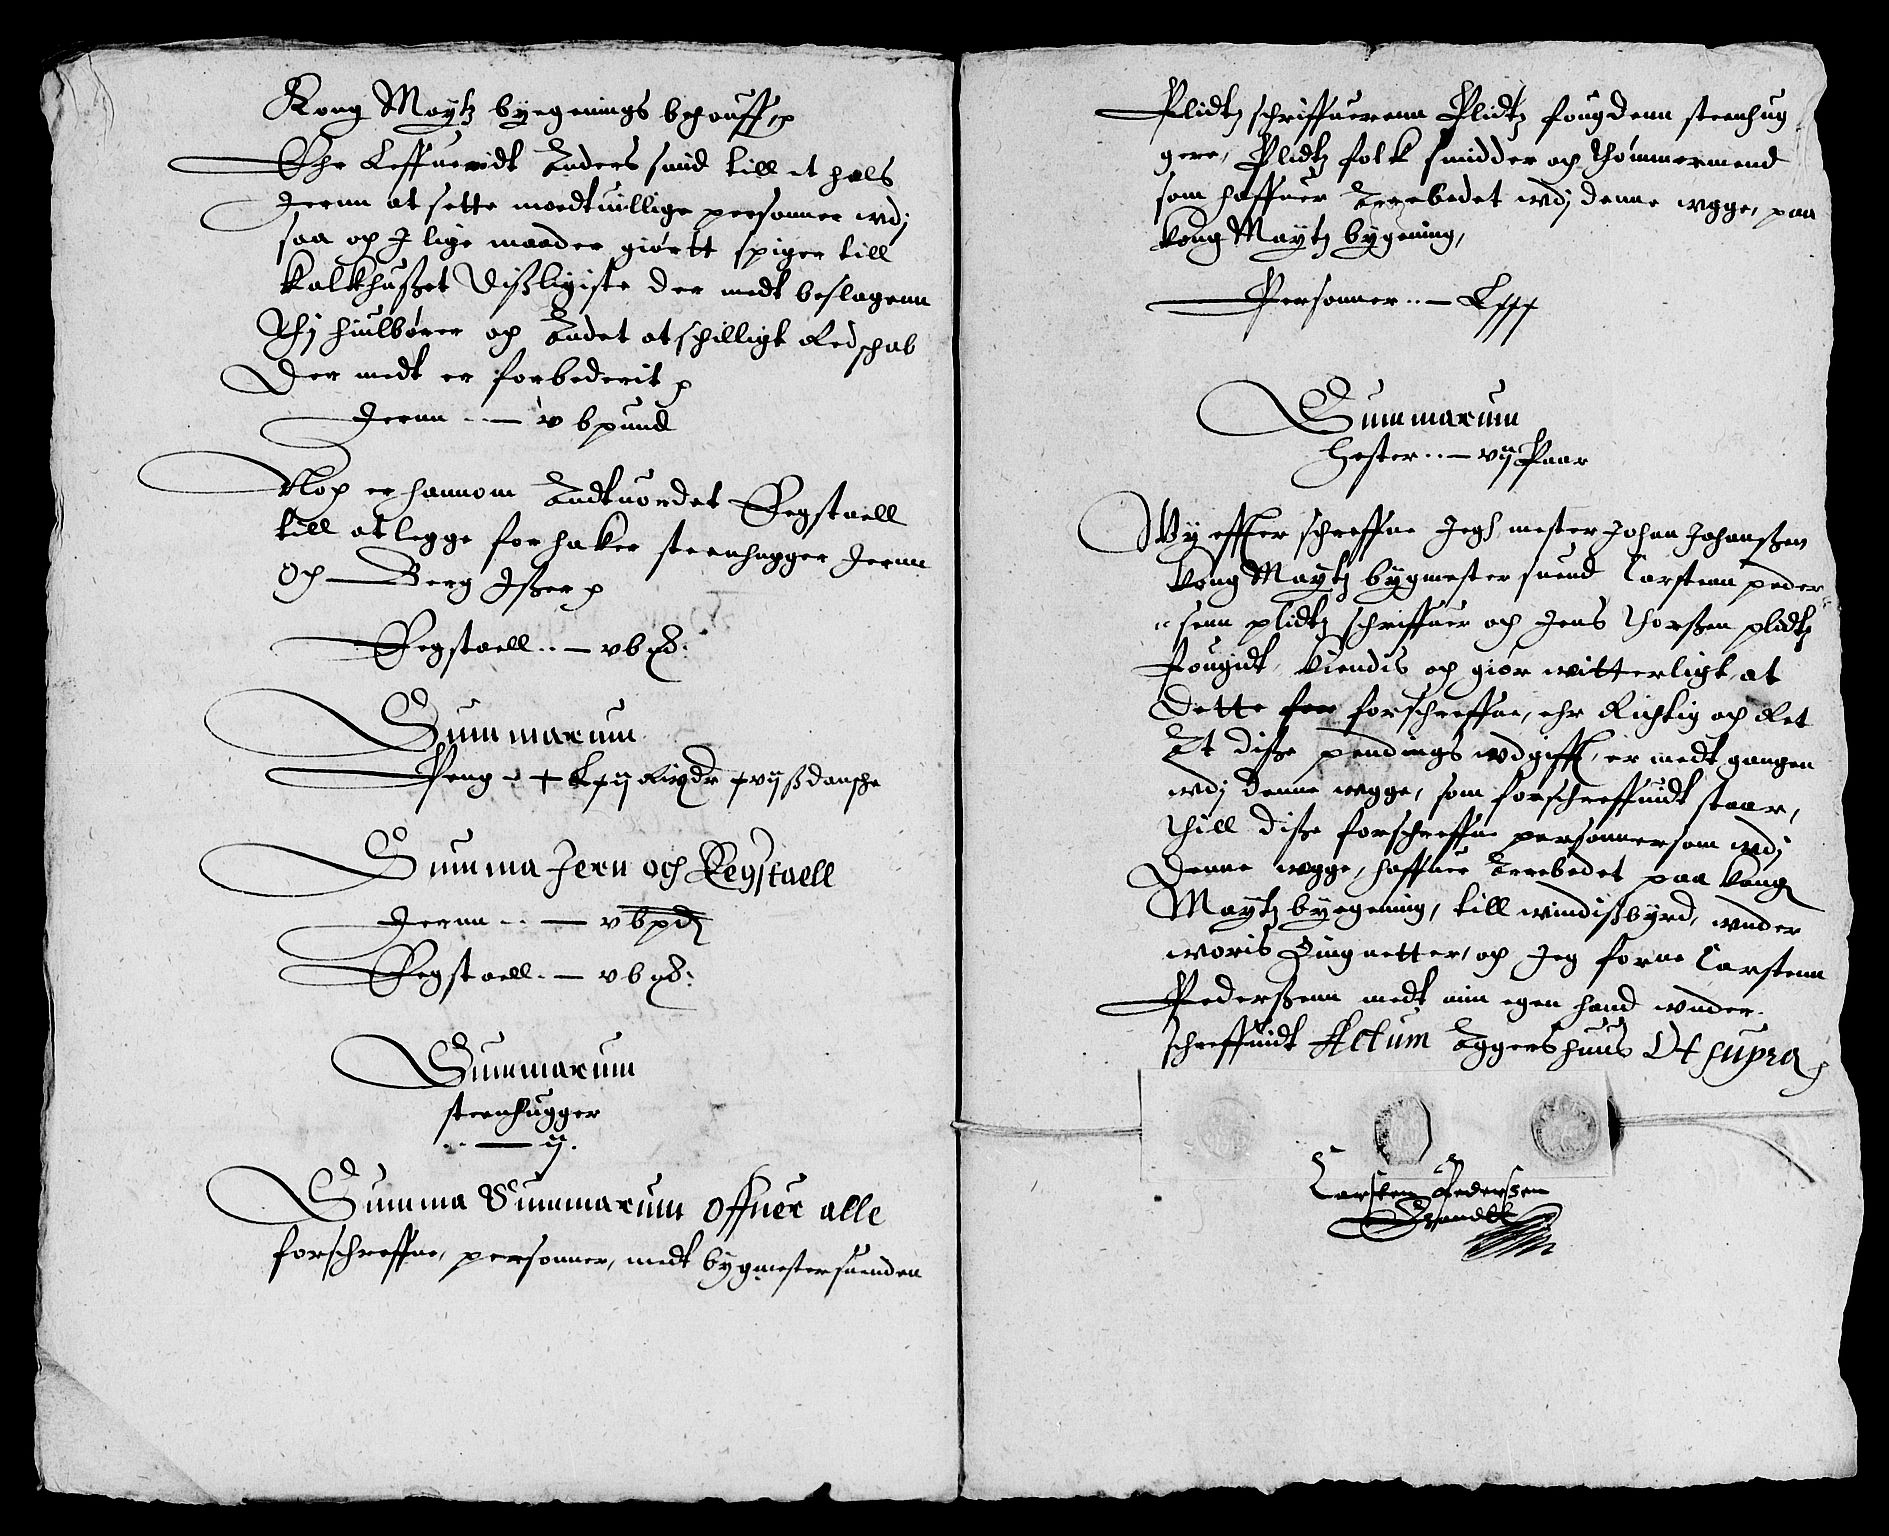 Kong Maytz byegenings behouff,
Ehr Leffueridt Anders smid till it hals
Jernn at sette moedtuillige personner wdj
saa och J lige maader giortt spiger till
kalkhusset Disligiste der medt beslagenn
Thj hiulbører och Andet atschilligt Redschab
Der medt er forbederit
Jernn .. — v bpund
Noch er hannom Andtuordet Regstaell
till at legge for haker steenhugger Jernn
Och — Berg Jsser
Regstaell .. — v b
Summarum
Peng
Summa Jern och Regstaell
Jernn .. — v bpd
Regstaell .. — v b
Summarum
steenhugger
.. — ij.
Summa Summarum Offuer alle
forschreffne, personner, medt bygmestersuenden
Plidtz schriffuerenn Plidtz fougdenn steenhug
gere, Plidtz folk smidder och Thømmermend
som haffuer Arrebedet wdj denne wgge, paa
kong Maytz bygening,
Personner .. — Lxxx
Summarum
Hester .. — vij Paar
Wy effter schreffne Jegh mester Johan Johanssen
kong Maytz bygmester suend Carstenn peder
senn plidtz schriffuer och Jens Thorssen plidtz
fougidt, kiendis och giør witterligt, at
dette for forschreffne, ehr Richtig och Ret
At disse pendings wdgifft, er medt gangen
wdj denne wgge, som forschreffuidt staar,
Thill disse forschreffne personner som wdj
Denne wgge, haffuer Arrebedet paa kong
Maytz byegening, till windissbyrd, wnder
woris Zingnetter, och Jeg forne Carstenn
Pederssenn medt min egen hand wnder
schreffuidt Actum Aggershuus Vt supra
Carsten Pederssen